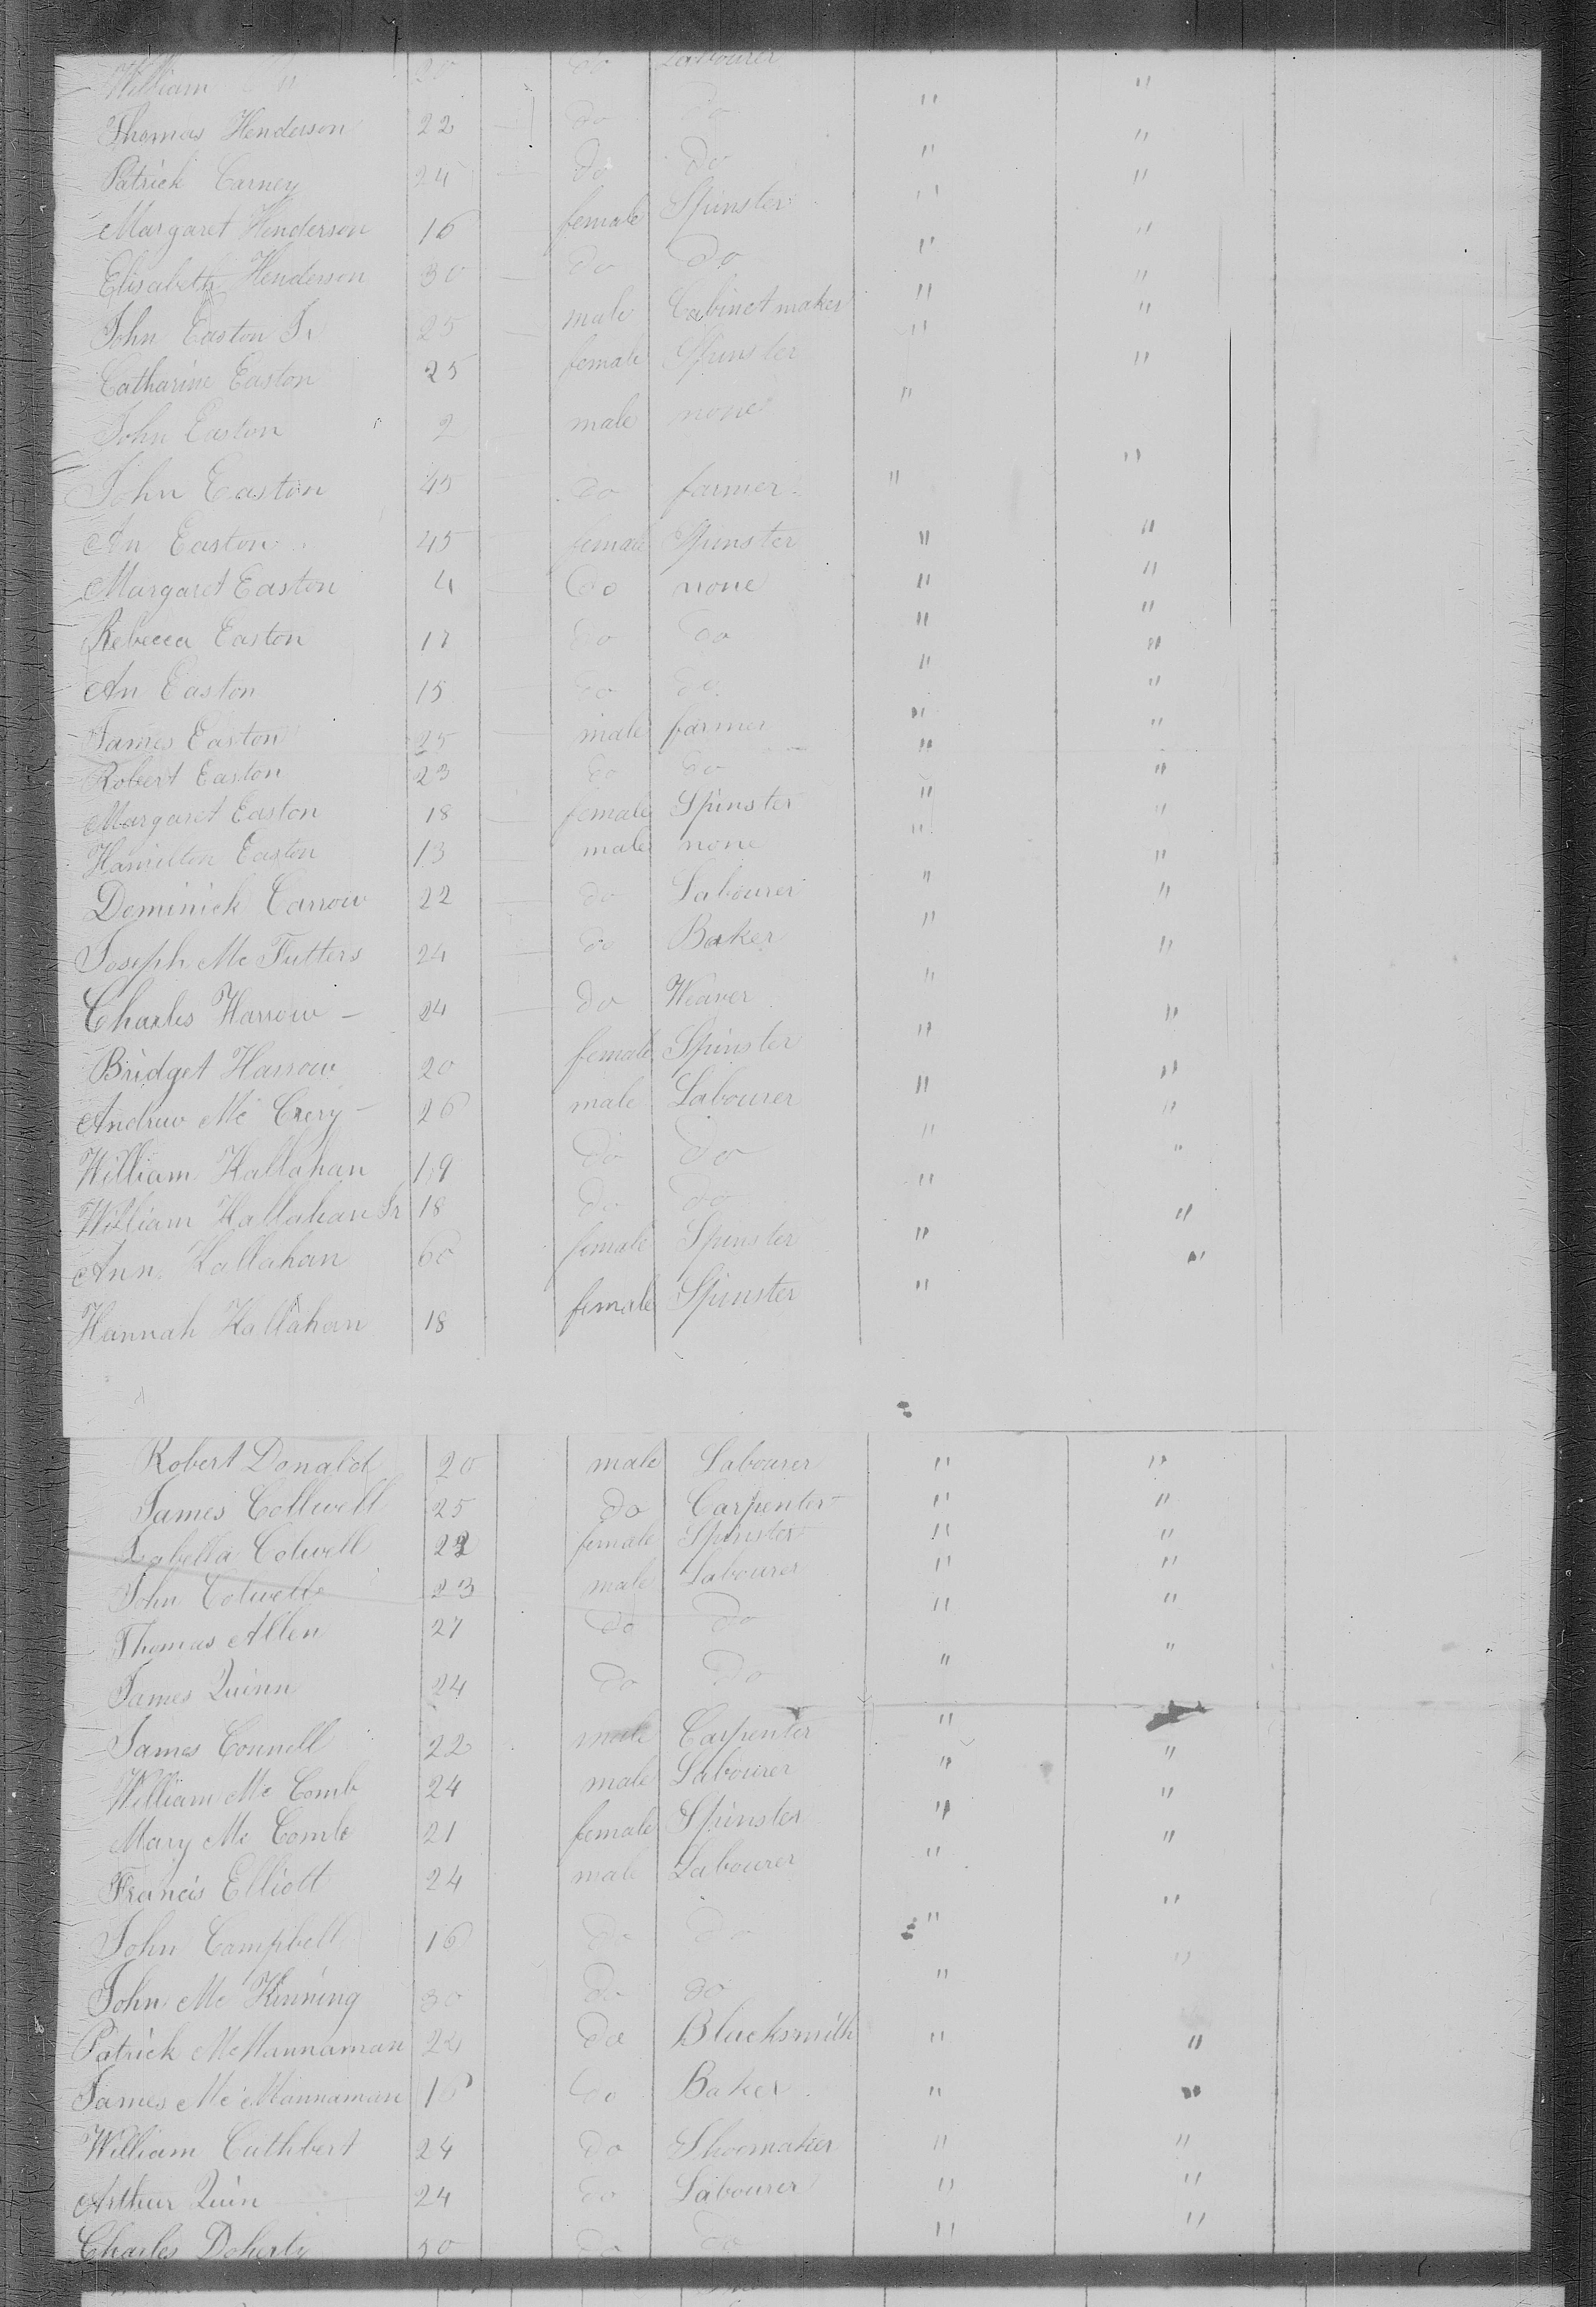 William 20 do Labourer
Thomas Henderson 22 do do " "
Patrick Carney 24 do do " "
Margaret Henderson 16 female Spinster " "
Elisabeth Henderson 30 do do " "
John Easton Jr 25 male Cabinet maker " "
Catharine Easton 25 female Spinster " "
John Easton 2 male none " "
John Easton 45 do farmer " "
An Easton 45 female Spinster " "
Margaret Easton 4 do none " "
Rebecca Easton 17 do do " "
An Easton 15 do do " "
James Easton 25 male farmer " "
Robert Easton 23 do do " "
Margaret Easton 18 female Spinster " "
Hamilton Easton 13 male none " "
Dominick Carrow 22 do Labourer " "
Joseph Mc Futters 24 do Baker " "
Charles Harrow - 24 do Weaver " "
Bridget Harrow 20 female Spinster " "
Andrew Mc Crery - 26 male Labourer " "
William Hallahan 19 do do " "
William Hallahan Jr 18 do do " "
Ann Hallahan 60 female Spinster " "
Hannah Hallahan 18 female Spinster " "
Robert Donald 20 male Labourer " "
James Collwell 25 do Carpenter " "
Isabella Colwell 22 female Spinster " "
John Colwell 23 male Labourer " "
Thomas Allen 27 do do " "
James Quinn 24 do do " "
James Connell 22 male Carpenter "
William Mc Comb 24 male Labourer " "
Mary Mc Comb 21 female Spinster " "
Francis Elliott 24 male Labourer " "
John Campbell 16 do do " "
John Mc Kinning 30 do do " "
Patrick McMannaman 24 do Blacksmith " "
James Mc Mannaman 16 do Baker " "
William Cuthbert 24 do Shoemaker " "
Arthur Quin 24 do Labourer " "
Charles Doherty 50 do do " "